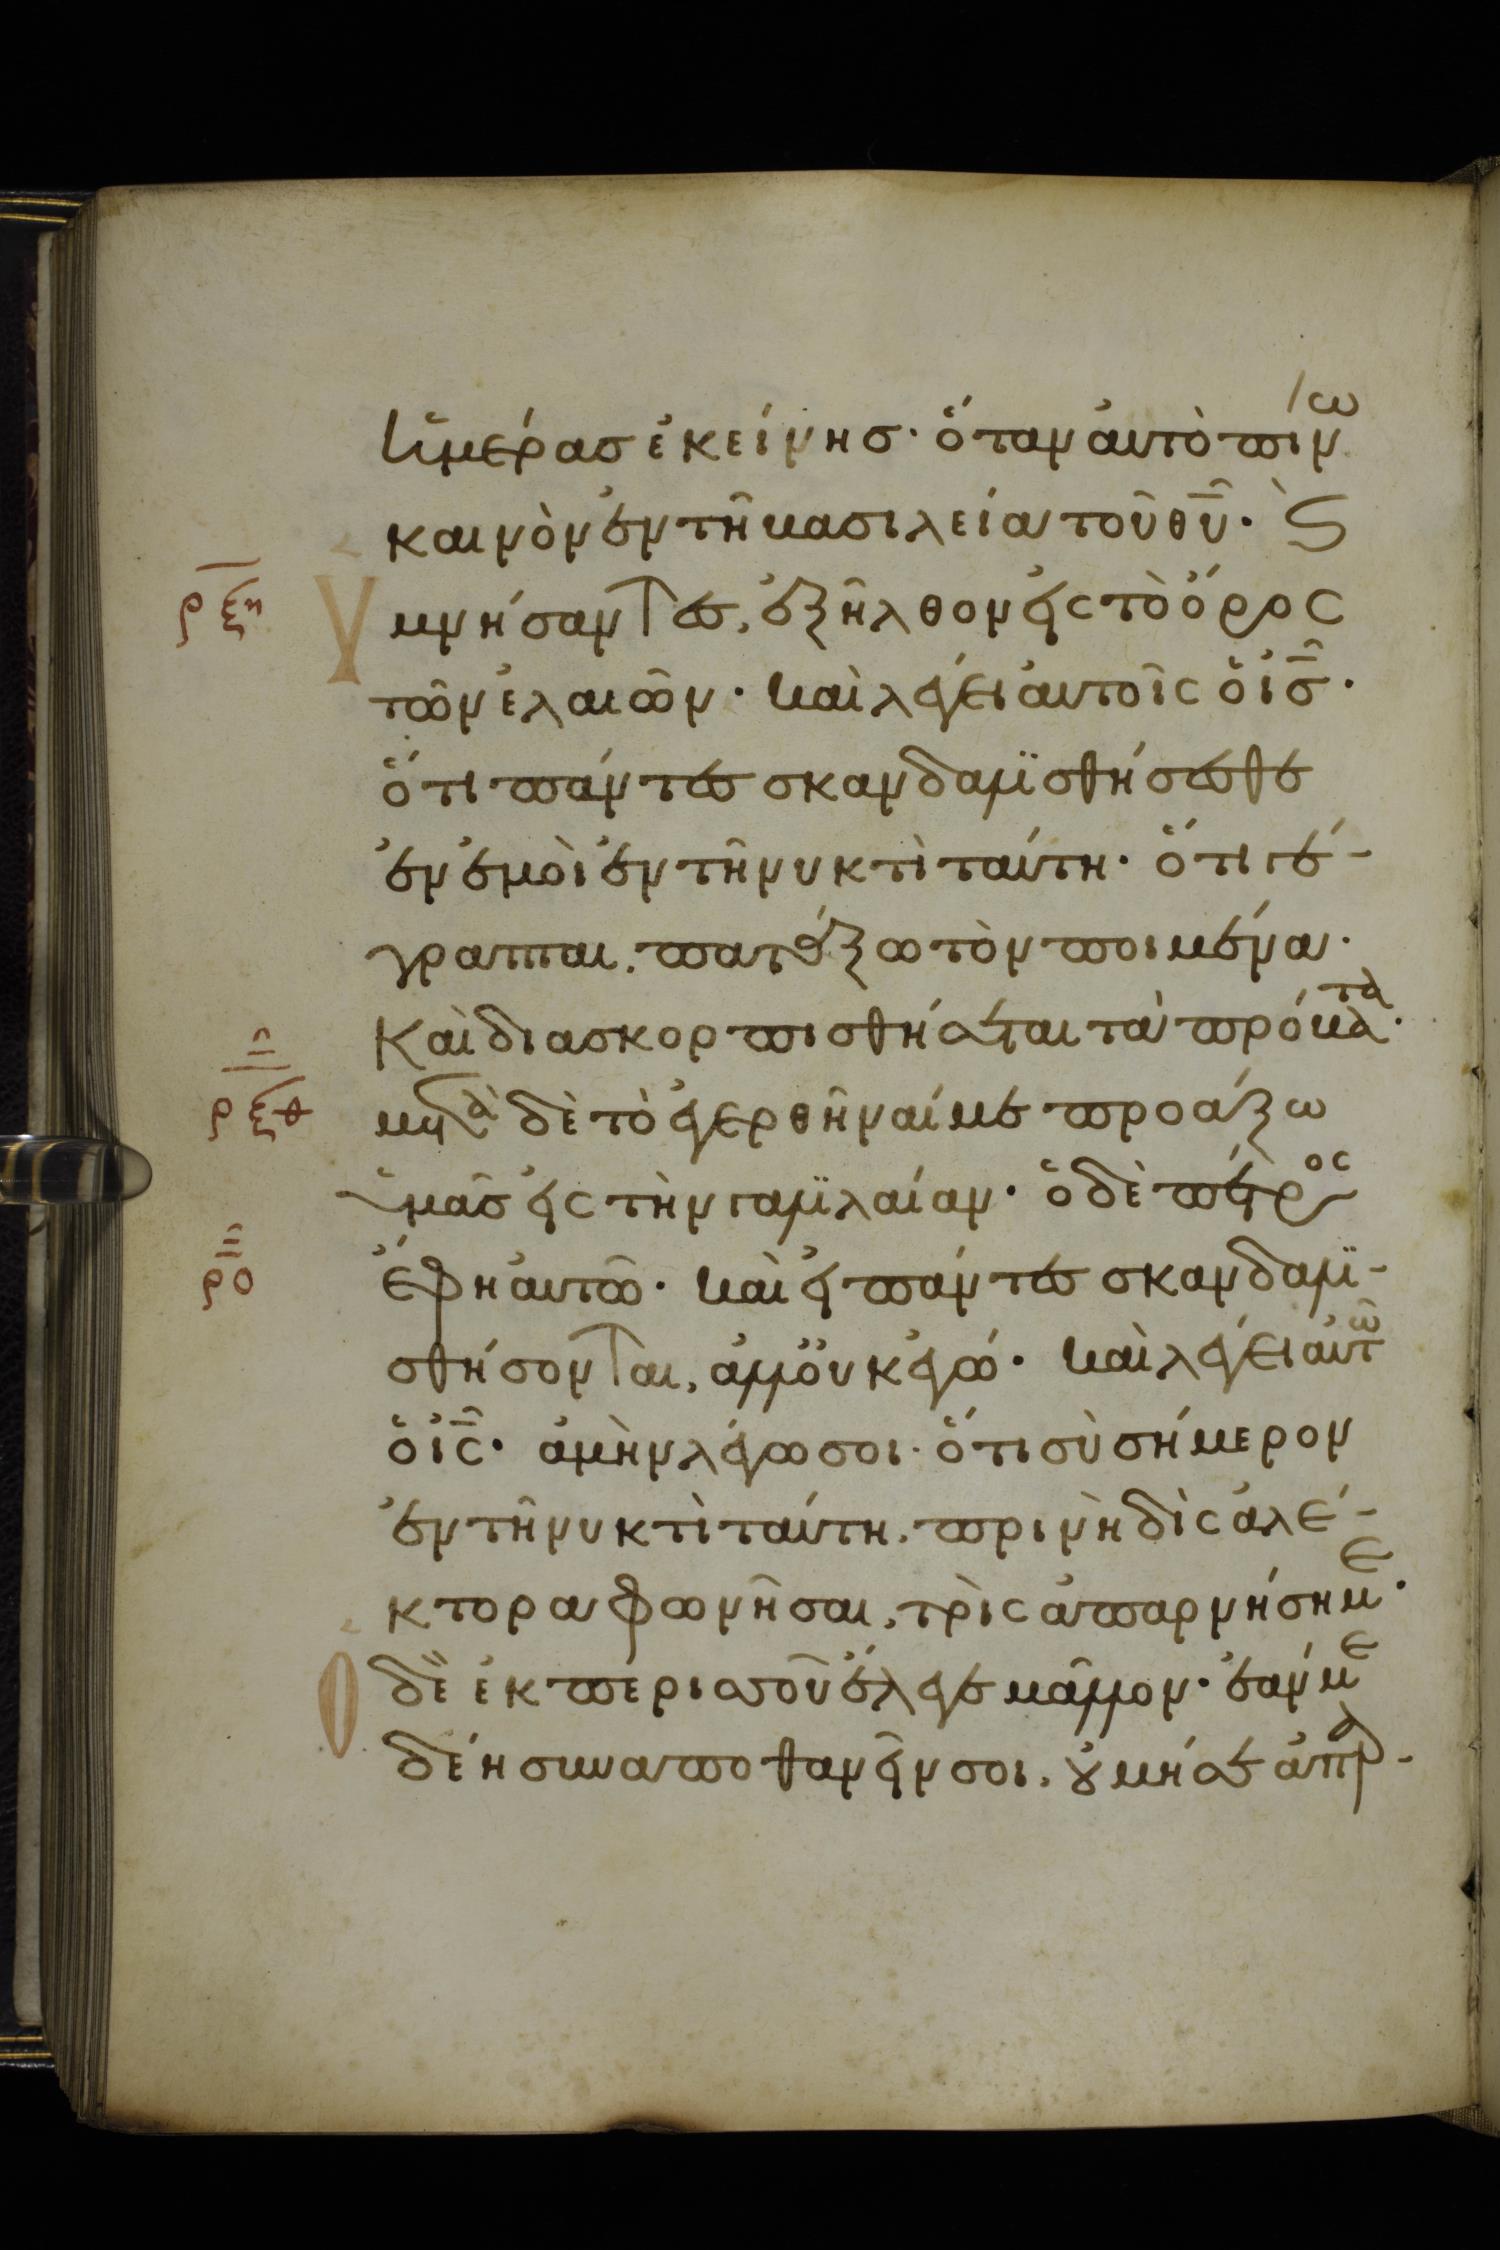 ἡμέρας ἐκείνης· ὅταν αὐτὸ πίνω
καινὸν ἐν τῆ βασιλεία τοῦ θῦ· Κὰὶ
ρξη Ὑμνήσαντες, ἐξῆλθον εἰς τὸ ὄρος
τῶν ἐλαιῶν· καὶ λέγει αὐτοῖς ὁ ἰς·
ὅτι πάντες σκανδαλισθήσεσθε
ἐν ἐμοὶ ἐν τῆ νυκτὶ ταύτη· ὅτι γέ-
γραπται. πατάξω τὸν ποιμένα·
Καὶ διασκορπισθήσεται τὰ πρόβατα·
ρξθ μετὰ δὲ τὸ ἐγερθῆναί με προάξω
ὑμᾶς εἰς τὴν γαλιλαίαν· ὁ δὲ πέτρος
ρο ἔφη αὐτῶ· καὶ εἰ πάντες σκανδαλι-
σθήσονται, ἀλλ' οὐκ ἐγώ· καὶ λέγει αὐτῶ
ὁ ἰς· ἀμὴν λέγω σοι· ὅτι σὺ σήμερον
ἐν τῆ νυκτὶ ταύτη. πρινὴ δὶς ἀλέ-
κτορα φωνῆσαι, τρὶς ἀπαρνήση με·
Ὁ δὲ ἐκ περισσοῦ ἔλεγε μᾶλλον· ἐάν με
δέη συναποθανεῖν σοι, οὐ μή σε ἀπαρ-